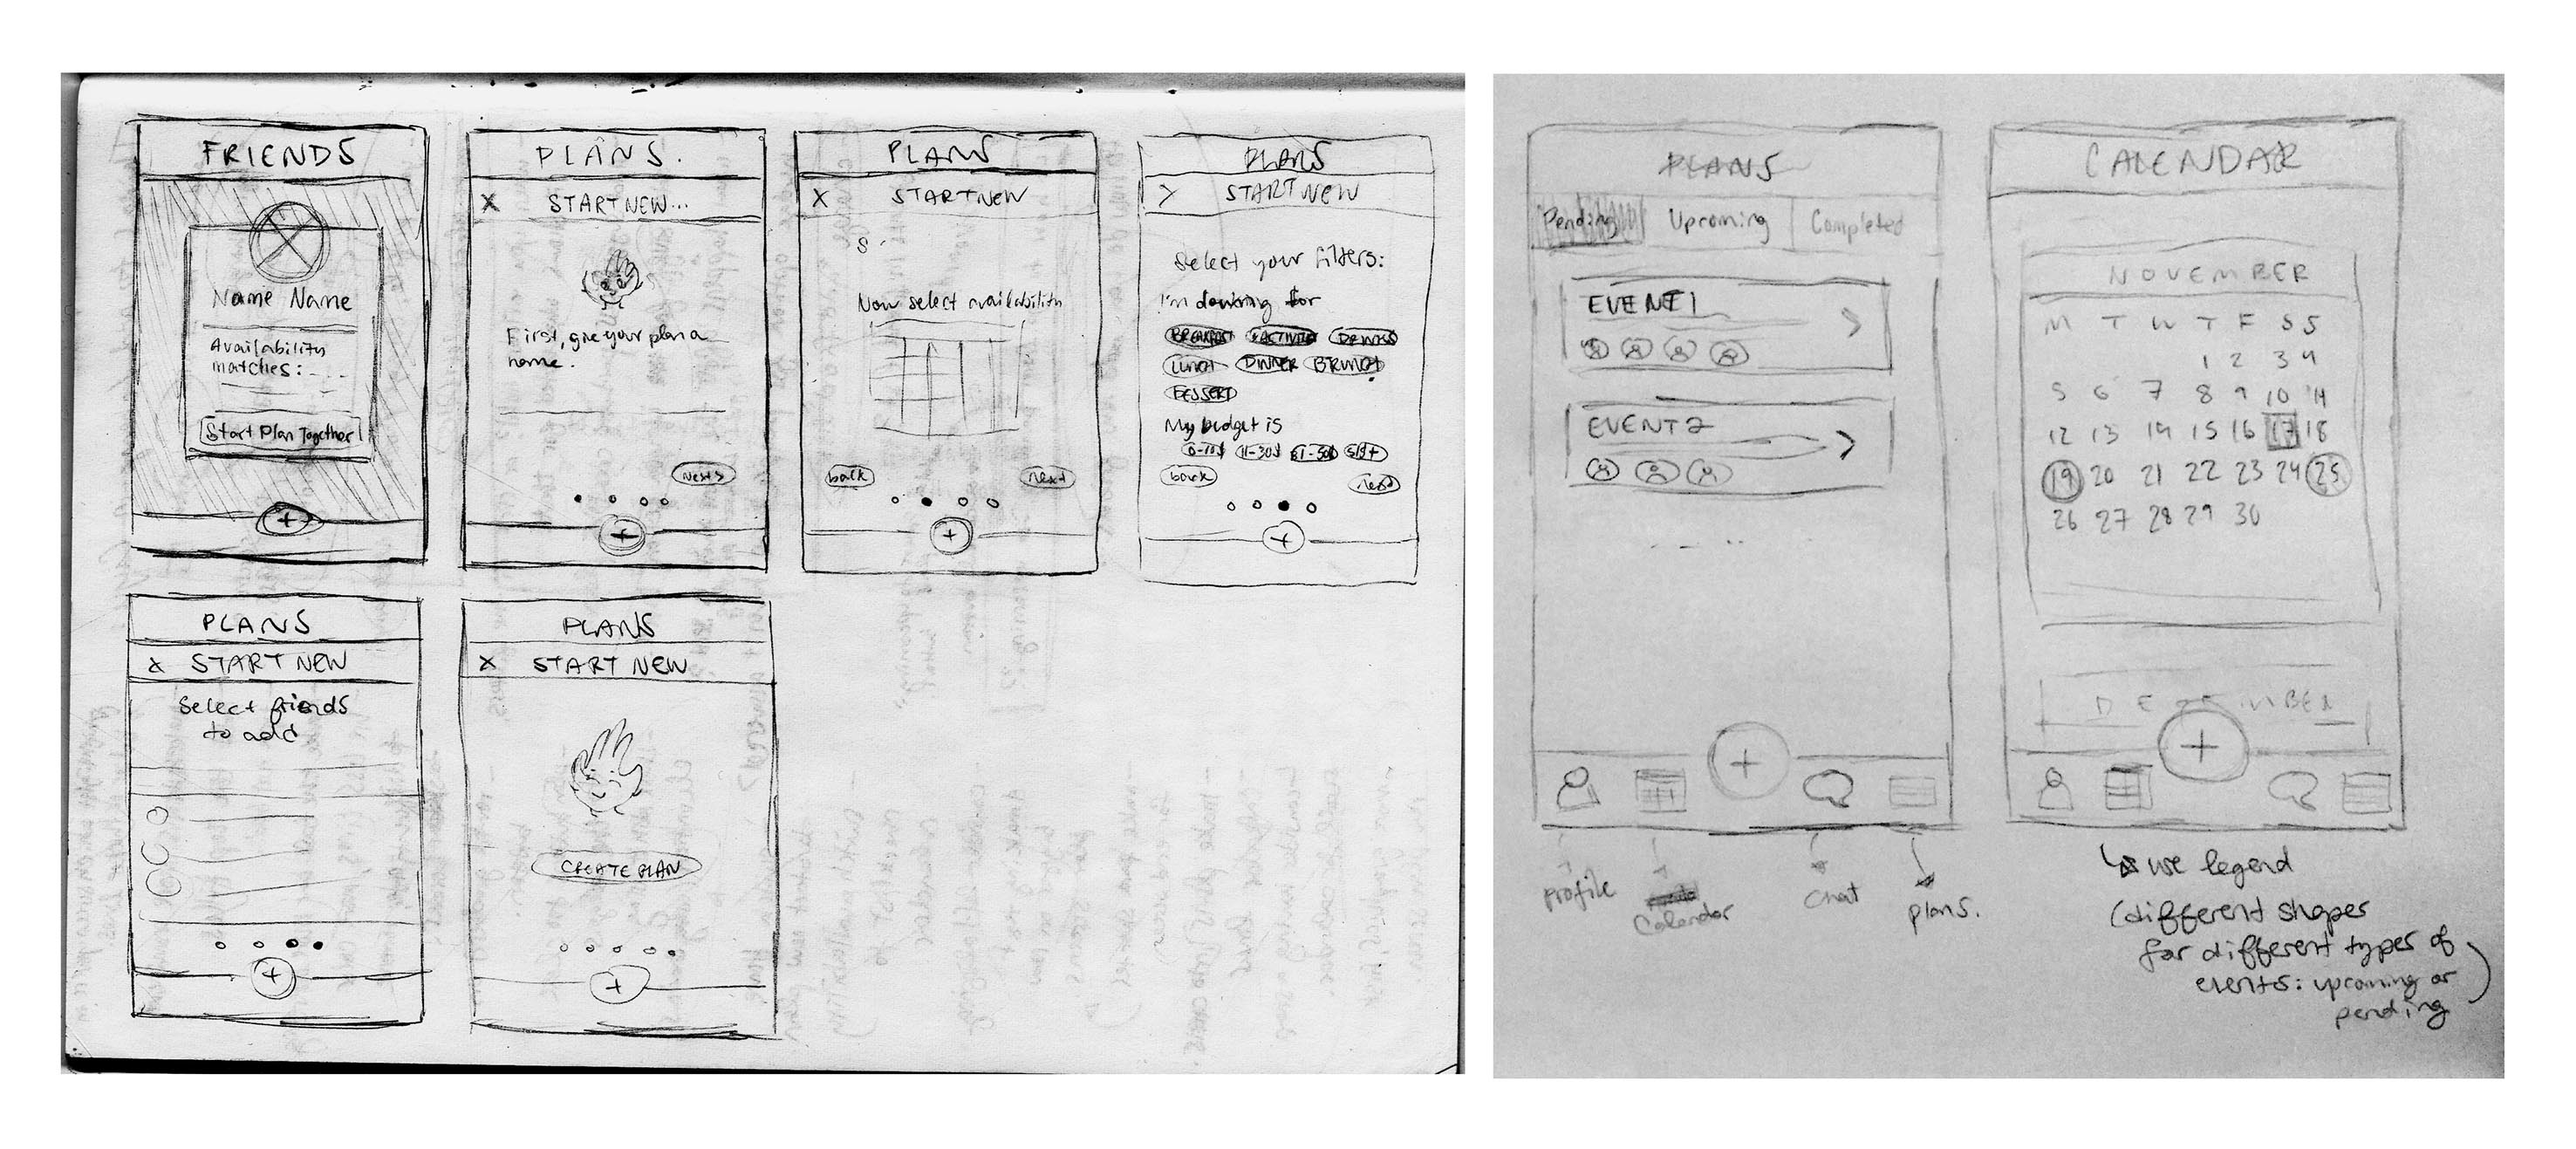 FRIENDS
Name Name
Availability
matches:
Start Plan Together
+
PLANS.
X START NEW...
First, give your plan a
name.
Next >
+
PLANS
X START NEW
S
Now select availability
back next
+
PLANS
> START NEW
Select your filters:
I'm looking for
BREAKFAST ACTIVITY DRINKS
LUNCH DINNER BRUNCH
DESSERT
My budget is
0-10$ 11-30$ 31-50$ 51$+
back next
+
PLANS
X START NEW
Select friends
to add
+
PLANS
X START NEW
CREATE PLAN
+
PLANS
Pending Upcoming Completed
EVENT 1
>
EVENT 2
>
+
Profile
Calendar
Chat
plans.
CALENDAR
NOVEMBER
M T W T F S S
1 2 3 4
5 6 7 8 9 10 11
12 13 14 15 16 17 18
19 20 21 22 23 24 25
26 27 28 29 30
DECEMBER
+
use legend
(different shapes
for different types of
events: upcoming or
pending)